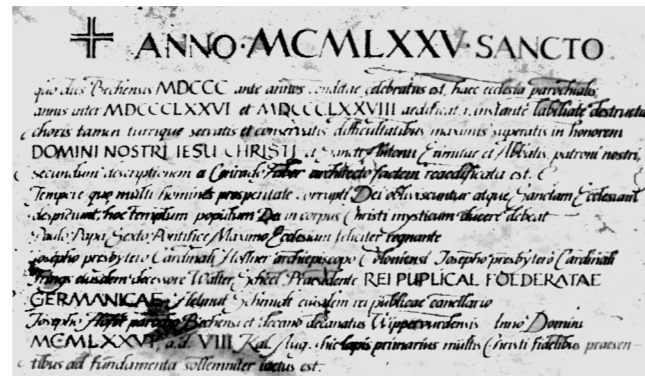 ANNO · MCMLXXV · SANCTO
quo dies Bechensis MDCCC ante annos conditae celebratus est, haec ecclesia parochialis,
annis inter MDCCCLXXVI et MDCCCLXXVIII aedificata, instante labilitate destructa
choris tamen turrique servatis et conservatis difficultatibus maximis superatis in honorem
DOMINI NOSTRI IESU CHRISTI et Sancti Antonii Eremitae et Abbatis, patroni nostri,
secundum descriptionem a Conrado Faber architecto factem reaedificata est.
Tempere quo multi homines prosperitate corrupti Dei obliviscuntur atque Sanctam Ecclesiam
despiciunt, hoc templum populum Dei in corpus Christi mysticum ducere debeat
Paulo Papa Sexto Pontifice Maximo Ecclesiam feliciter regnante
Josepho presbytero Cardinali Höffner archiepiscopo Coloniensi Josepho presbytero Cardinali
Frings eiusdem decessore Walter Scheel Praesidente REI PUPLICAE FOEDERATAE
GERMANICAE Helmut Schmidt eiusdem rei publicae cancellario
Josepho parocho Bechensi et decano decanatus Wippervurdensis Anno Domini
MCMLXXVI, a.d. VIII Kal. Aug. hic lapis primarius multis Christi fidelibus praesen-
tibus ad fundamenta sollemniter iactus est.